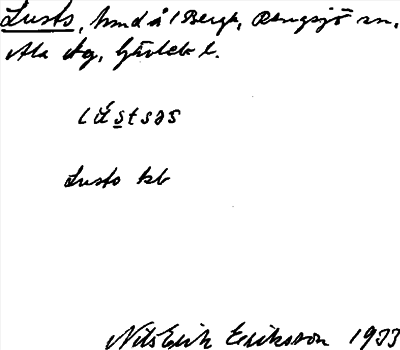 Lusts, hmd å 1 Berge, Rengsjö sn,
Ala tg, Gävleb l.
Lusts kb
Nils Erik Eriksson 1933